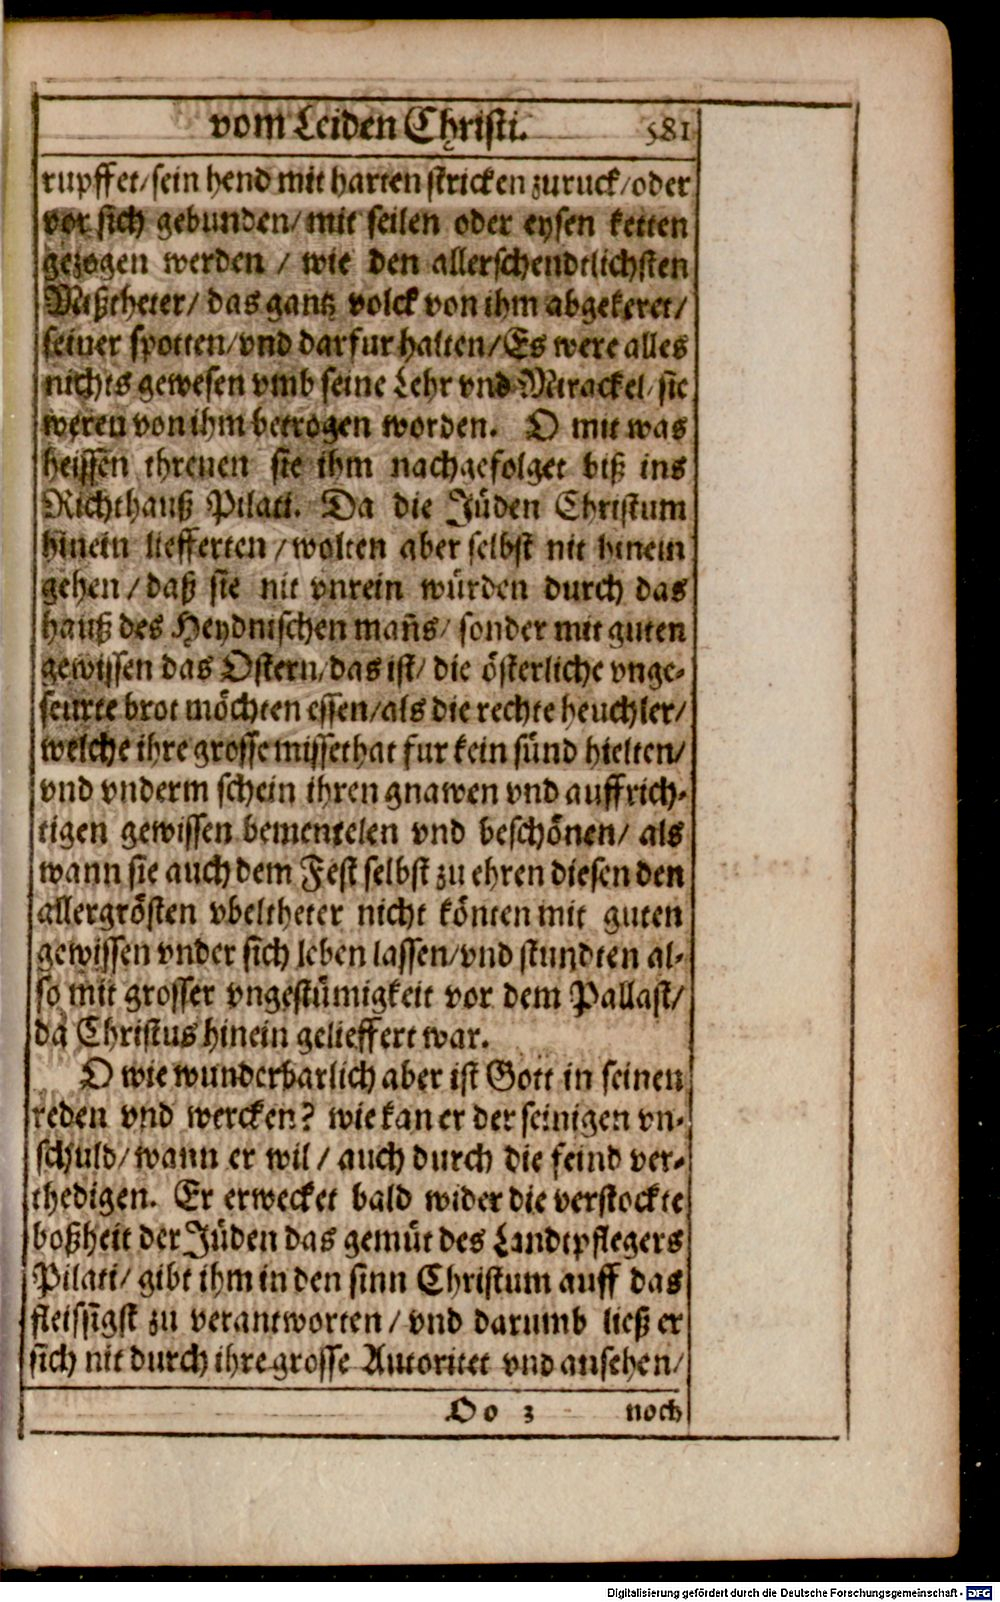 vom Leiden Christi. 581
rupffet/ sein hend mit harten stricken zuruck/ oder
vor sich gebunden/ mit seilen oder eysen ketten
gezogen werden / wie den allerschendtlichsten
Mißtheter/ das gantz volck von ihm abgekeret/
seiner spotten/ vnd darfur halten/ Es were alles
nichts gewesen vmb seine Lehr vnd Mirackel/ sie
weren von ihm betrogen worden. O mit was
heissen threnen sie ihm nachgefolget biß ins
Richthauß Pilati. Da die Jüden Christum
hinein liefferten / wolten aber selbst nit hinein
gehen / daß sie nit vnrein würden durch das
hauß des Heydnischen mañs/ sonder mit guten
gewissen das Ostern/ das ist/ die österliche vnge-
seurte brot möchten essen/ als die rechte heuchler/
welche ihre grosse missethat fur kein sünd hielten/
vnd vnderm schein ihren gnawen vnd auffrich-
tigen gewissen bementelen vnd beschönen/ als
wann sie auch dem Fest selbst zu ehren diesen den
allergrösten vbeltheter nicht könten mit guten
gewissen vnder sich leben lassen/ vnd stundten al-
so mit grosser vngestümigkeit vor dem Pallast/
da Christus hinein gelieffert war.
O wie wunderbarlich aber ist Gott in seinen
reden vnd wercken? wie kan er der seinigen vn-
schuld/ wann er wil / auch durch die feind ver-
thedigen. Er erwecket bald wider die verstockte
boßheit der Jüden das gemüt des Landtpflegers
Pilati/ gibt ihm in den sinn Christum auff das
fleissigst zu verantworten / vnd darumb ließ er
sich nit durch ihre grosse Autoritet vnd ansehen/
Oo 3 noch
Digitalisierung gefördert durch die Deutsche Forschungsgemeinschaft - DFG